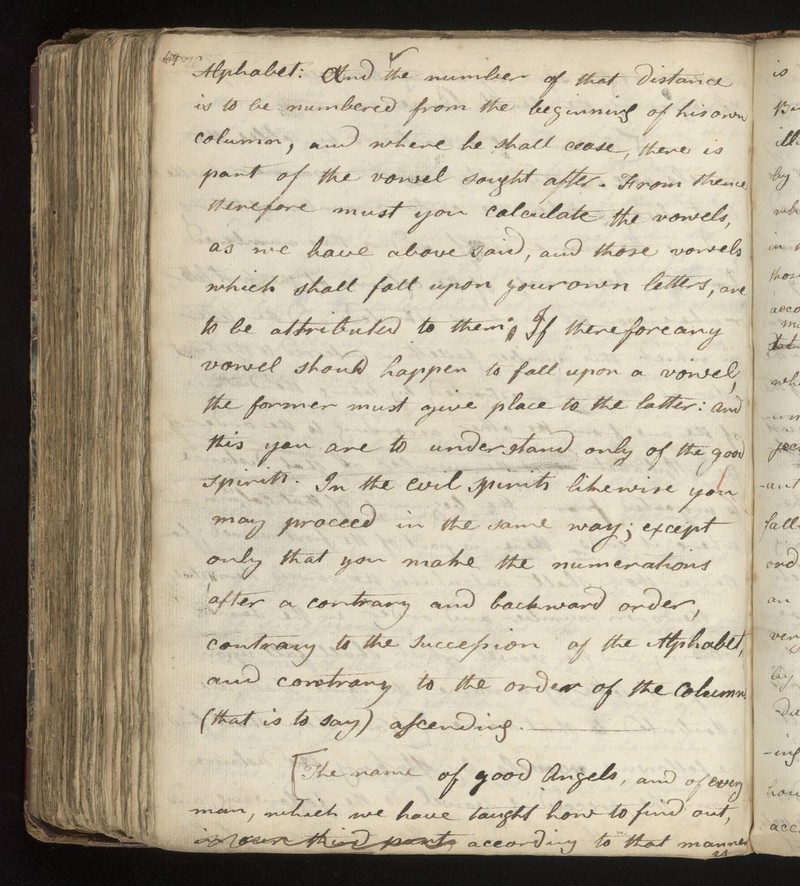 Alphabet: And the number of that distance
is to be numbered from the beginning of his own
column, and where he shall cease, there is
part of the vowel sought after. From thence
therefore must you calculate the vowels,
as we have above said, and those vowels
which shall fall upon your own letters, are
to be attributed to them; If therefore any
vowel should happen to fall upon a vowel,
the former must give place to the latter: and
this you are to understand only of the good
spirits. In the evil spirits likewise you
may proceed in the same way; except
only that you make the numerations
after a contrary and backward order,
contrary to the succession of the Alphabet,
and contrary to the order of the Columns
(that is to say) ascending.
[The name of good Angels, and of every
man, which we have taught how to find out,
in our third part, according to that manner